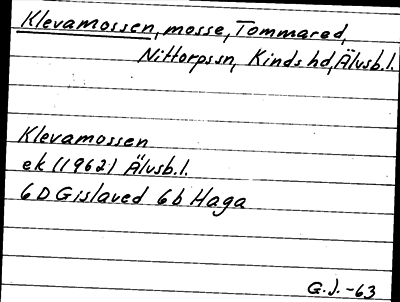 Klevamossen, mosse, Tommared,
Nittorpssn, Kinds hd, Älvsb.l.
Klevamossen
ek (1962) Älvsb.l.
6D Gislaved 6b Haga
G.J. -63